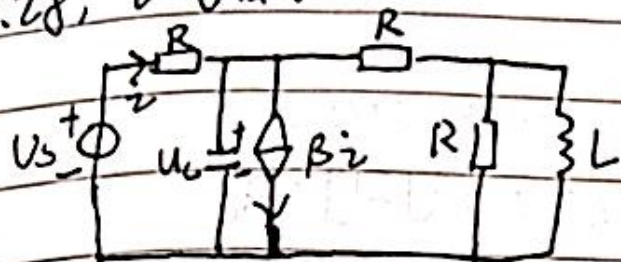 R
R
i
Us
+
-
uc
+
-
βi
R
L